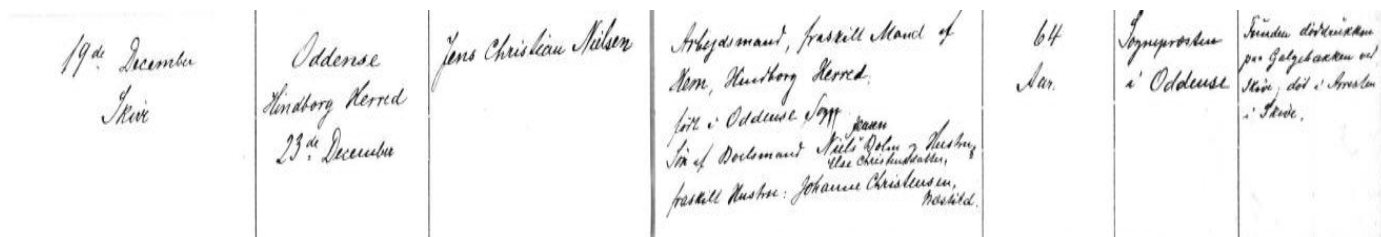 19de December
Skive
Oddense
Hindborg Herred
23de December
Jens Christian Nielsen
Arbejdsmand, fraskilt Mand af
Hem, Hindborg Herred,
født i Oddense Sogn
Søn af Boelsmand Niels Jensen Bolm og Hustru
Else Christensdatter,
fraskilt Hustru: Johanne Christensen,
64
Aar.
Sognepræsten
i Oddense
Funden døddrukken
paa Galgebakken ved
Skive, død i Arresten
i Skive.